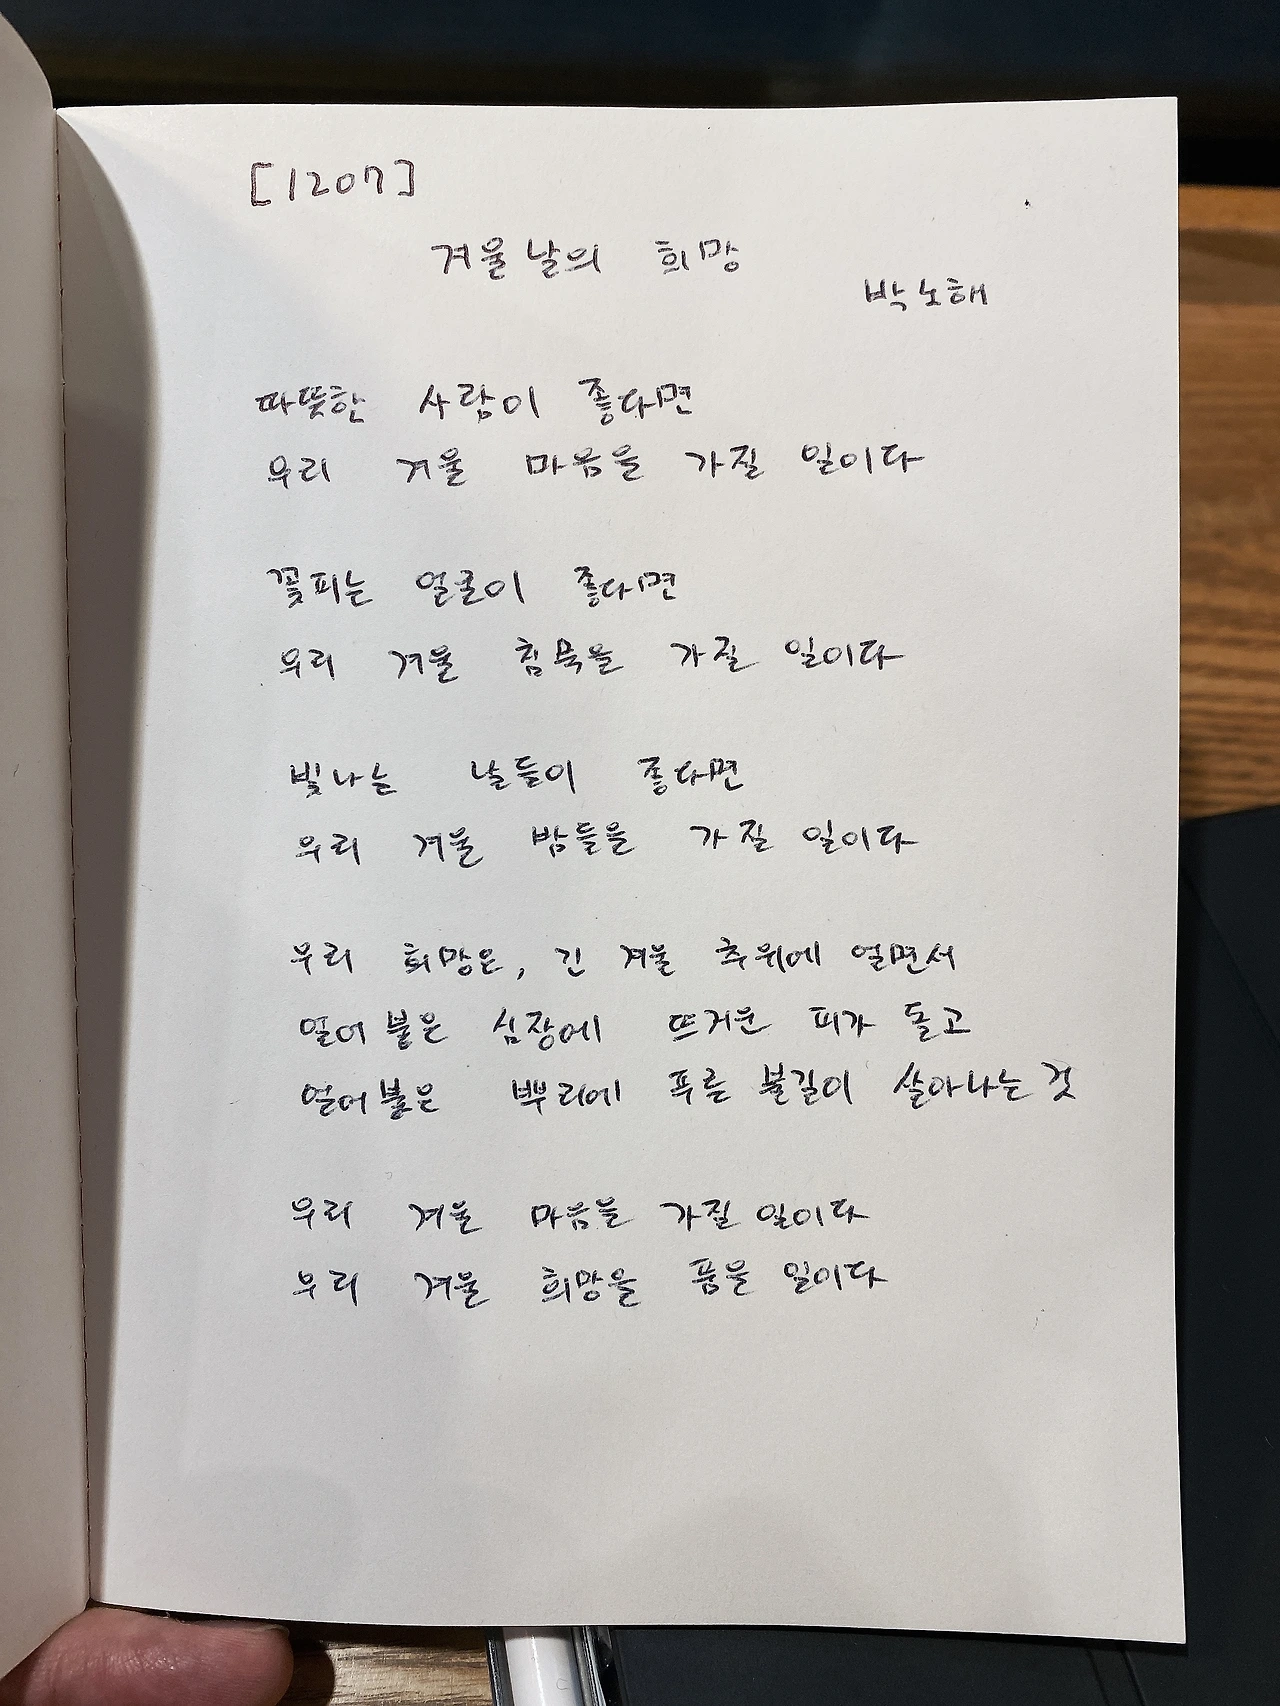 [1207]
겨울날의 희망
박노해
따뜻한 사람이 좋다면
우리 겨울 마음을 가질 일이다
꽃피는 얼굴이 좋다면
우리 겨울 침묵을 가질 일이다
빛나는 날들이 좋다면
우리 겨울 밤들을 가질 일이다
우리 희망은, 긴 겨울 추위에 얼면서
얼어붙은 심장에 뜨거운 피가 돌고
얼어붙은 뿌리에 푸른 불길이 살아나는 것
우리 겨울 마음을 가질 일이다
우리 겨울 희망을 품을 일이다